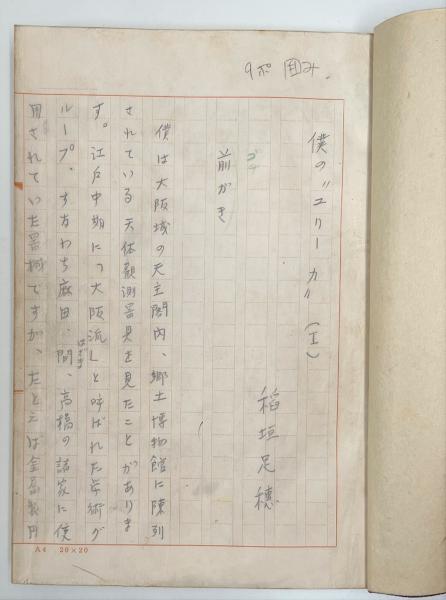 9ポ 囲み.
僕の"ユリーカ"(I)
稲垣足穂
ゴチ
前がき
僕は大阪城の天主閣内、郷土博物館に陳列
されている天体観測器具を見たことがありま
す。江戸中期に「大阪流」と呼ばれた学術グ
ループ、すなわち麻田、間、高橋の諸家に使
はざま
用されていた器械ですが、たとえば金属製円
A4 20×20